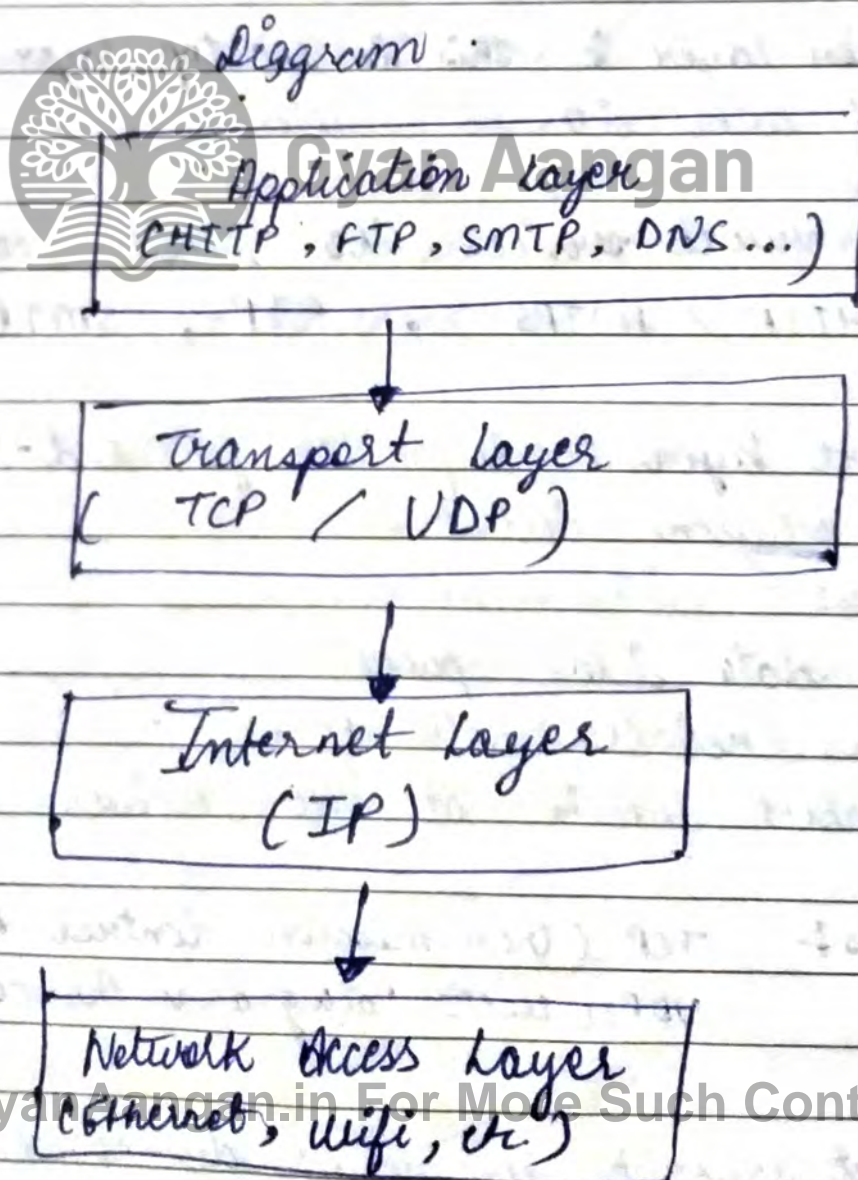 Diggram
Gyan Aangan
Application Layer
(HTTP, FTP, SMTP, DNS...)
Transport Layer
( TCP / UDP )
Internet Layer
(IP)
Network Access Layer
(Ethernet, Wifi, etc.)
yanAangan.in For More Such Cont